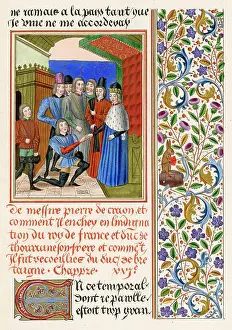 ne ramais a la pays tant que
Je vine ne me accordevay
De messire pierre de craon, et
comment il enchey en lindigna
tion du roy de france et duc de
thouraine son frere et commēt
il fut recoeillies du duc de bre
taigne. Chappre. xvj.
En ce temporal
dont re parolle
estoit trop gran